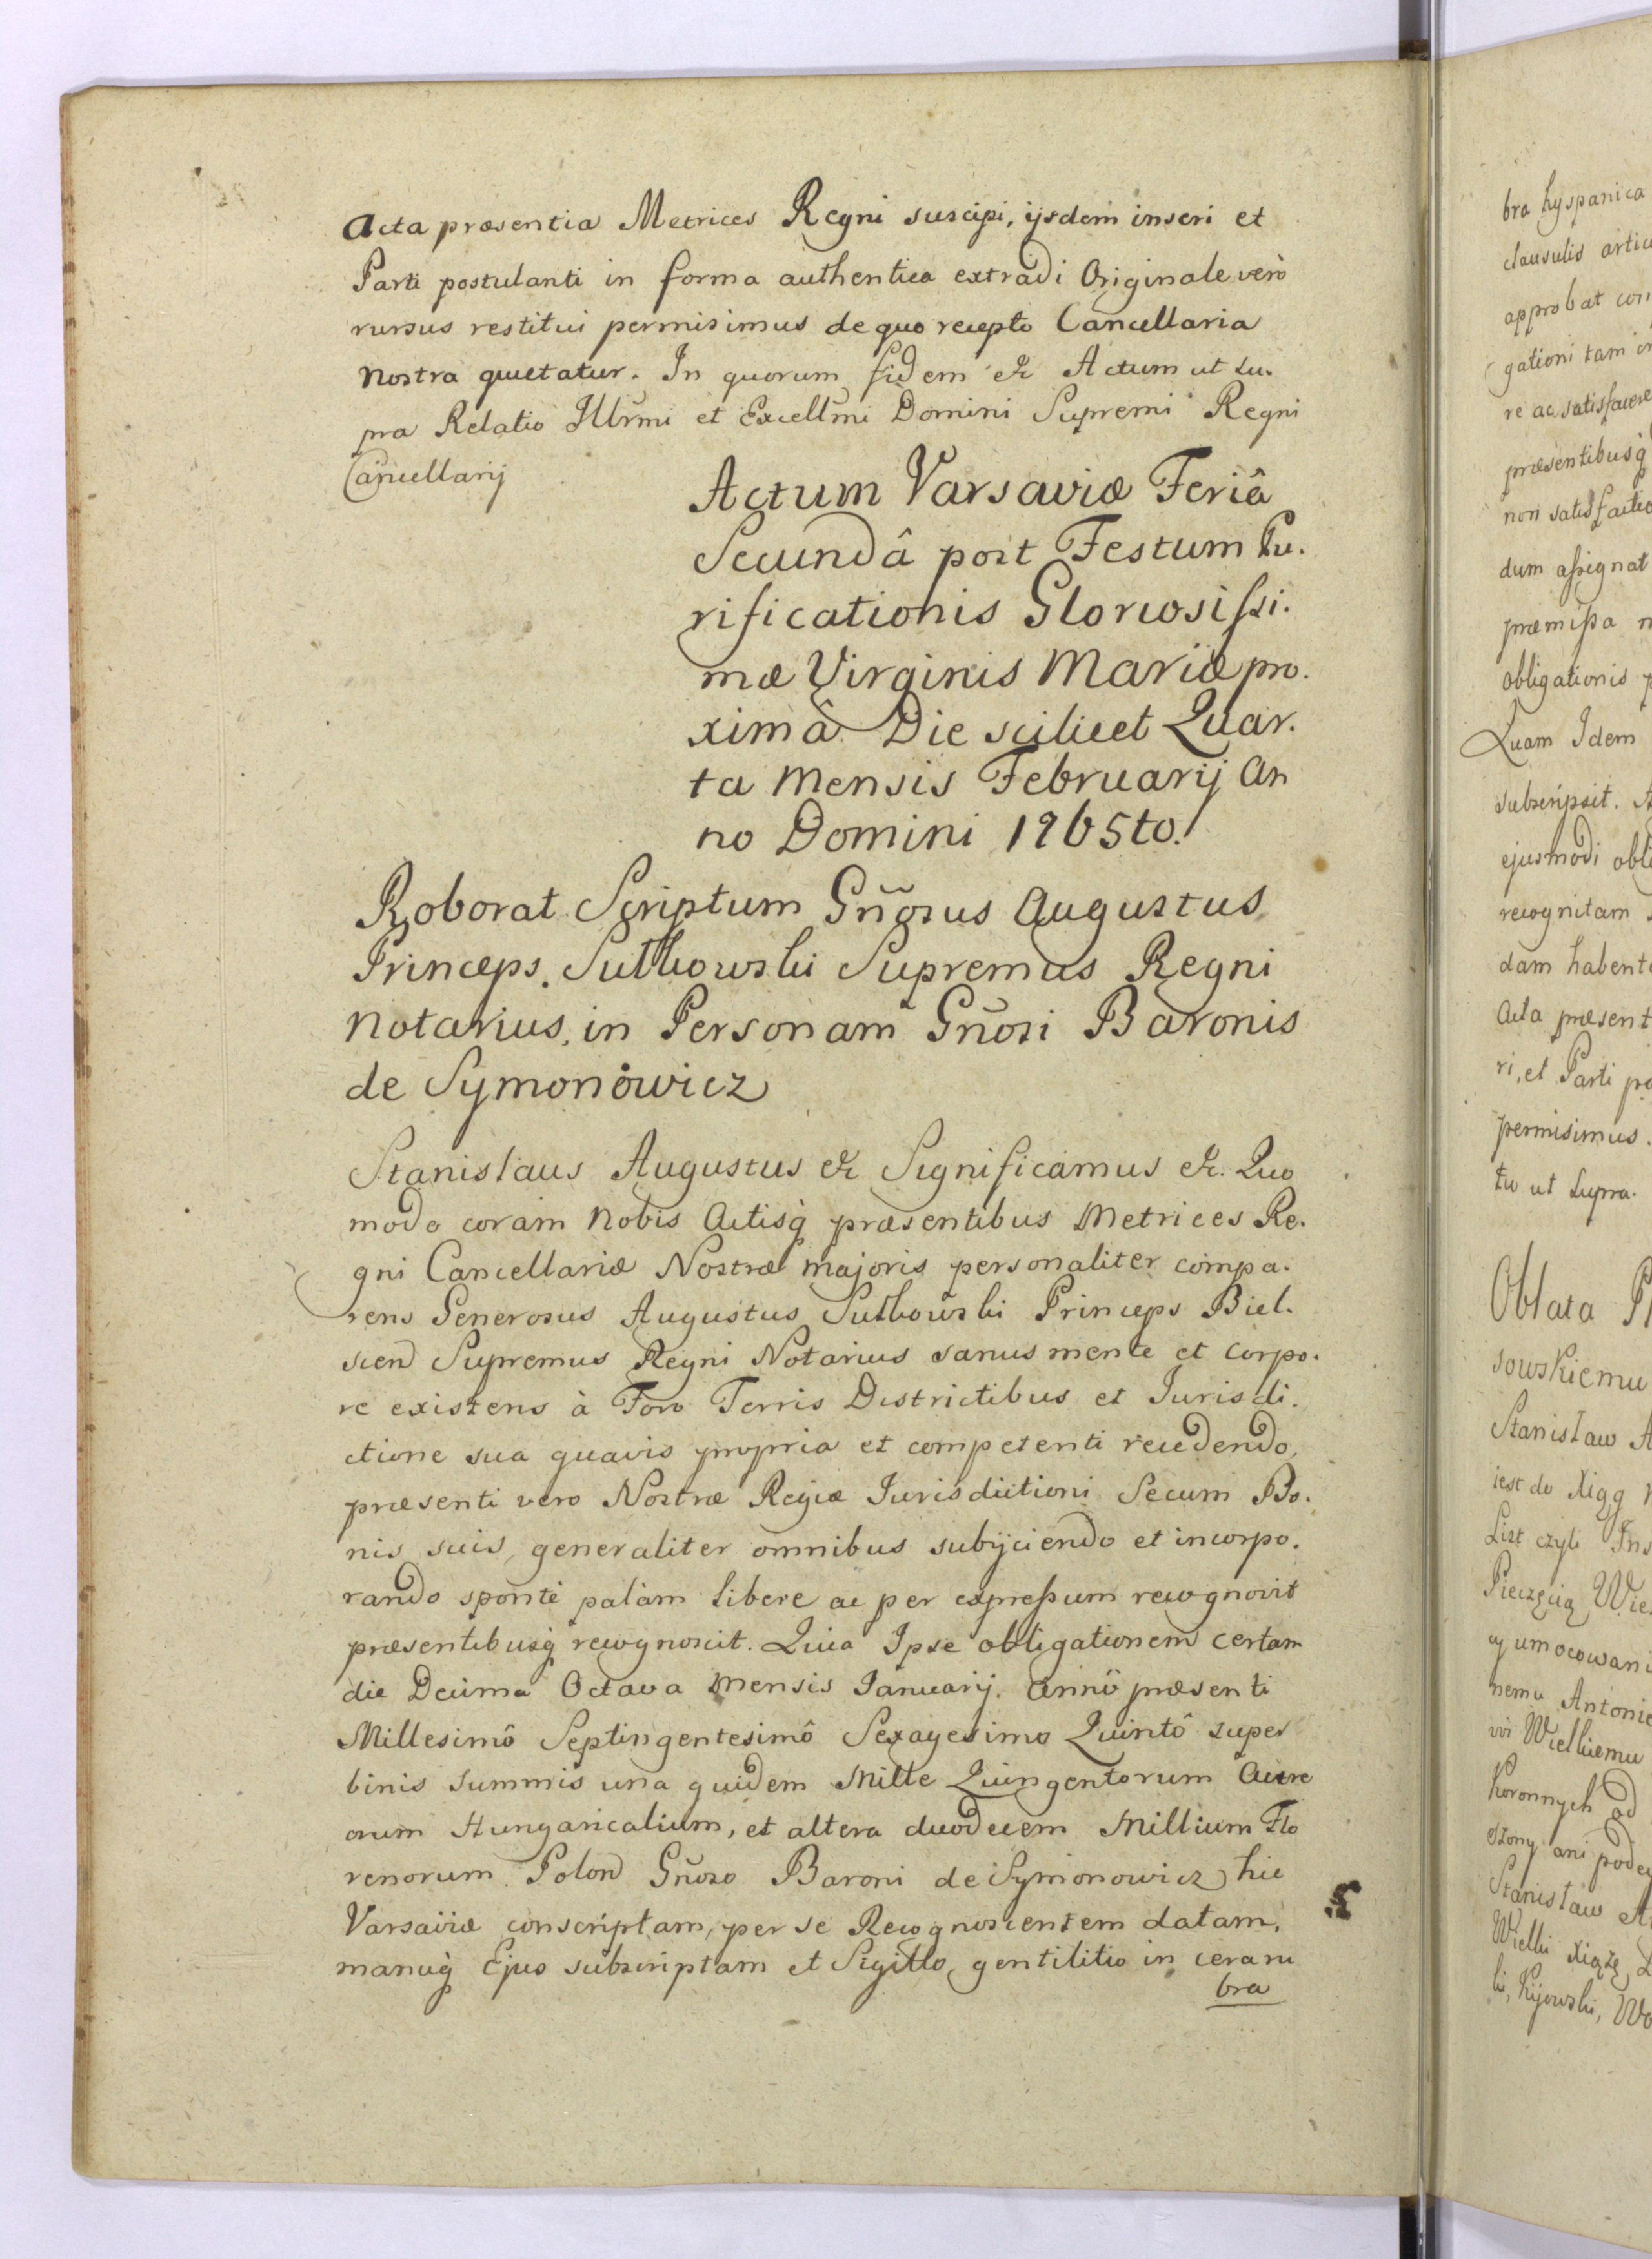 Acta præsentia Metrices Regni suscipi, ijsdem inseri et
Parti postulanti in forma authentica extradi Originale verò
rursus restitui permisimus de quo recepto Cancellaria
Nostra quietatur. In quorum fidem &c Actum ut su.
pra Relatio Illrmi et Excellmi Domini Supremi Regni
Cancellarij
Actum Varsaviæ Feriâ
Secundâ post Festum Pu.
rificationis Gloriosissi.
mæ Virginis Mariæ pro.
ximâ Die scilicet Quar.
ta Mensis Februarij An
no Domini 1765to.
Roborat Scriptum Gñosus Augustus
Princeps Sulkowski Supremus Regni
Notarius, in Personam Gñosi Baronis
de Symonowicz
Stanislaus Augustus &c Significamus &c. Quo
modo coram Nobis Actisq præsentibus Metrices Re.
gni Cancellariæ Nostræ majoris personaliter compa.
rens Generosus Augustus Sulkowski Princeps Biel.
scien Supremus Regni Notarius sanus mente et corpo.
re existens à Foro Terris Districtibus et Jurisdi.
ctione sua quavis propria et competenti recedendo,
præsenti vero Nostræ Regiæ Jurisdictioni Secum Bo.
nis suis generaliter omnibus subijciendo et incorpo.
rando sponte palàm libere ac per expressum recognovit
præsentibusq recognoscit. Quia Ipse obligationem certam
die Decima Octava Mensis Januarij. Anno præsenti
Millesimô Septingentesimô Sexagesimo Quintô super
binis summis una quidem Mille Quingentorum Aure
orum Hungaricalium, et altera duodecem Millium Flo
renorum Polon Gñoso Baroni de Symonowicz hic
Varsaviæ conscriptam, per se Recognoscentem datam,
manuq Ejus subscriptam et Sigillo gentilitio in cera ru
bra
bra hyspanica
clausulis
approbat
gationi tam
re ac satisfacere
præsentibusq
non
dum assignat
præmissa
obligationis
Quam Idem
subscripsit.
ejusmodi
recognitam
dam
Acta
ri, et Parti
permisimus.
tu ut supra.
Oblata
sowskiemu
Stanisław
iest do Xiąg
List czyli
Pieczęcią
nemu
Wielkiemu
koronnych ad
ani
Stanisław
Wielki Xiążę
Kijowski,